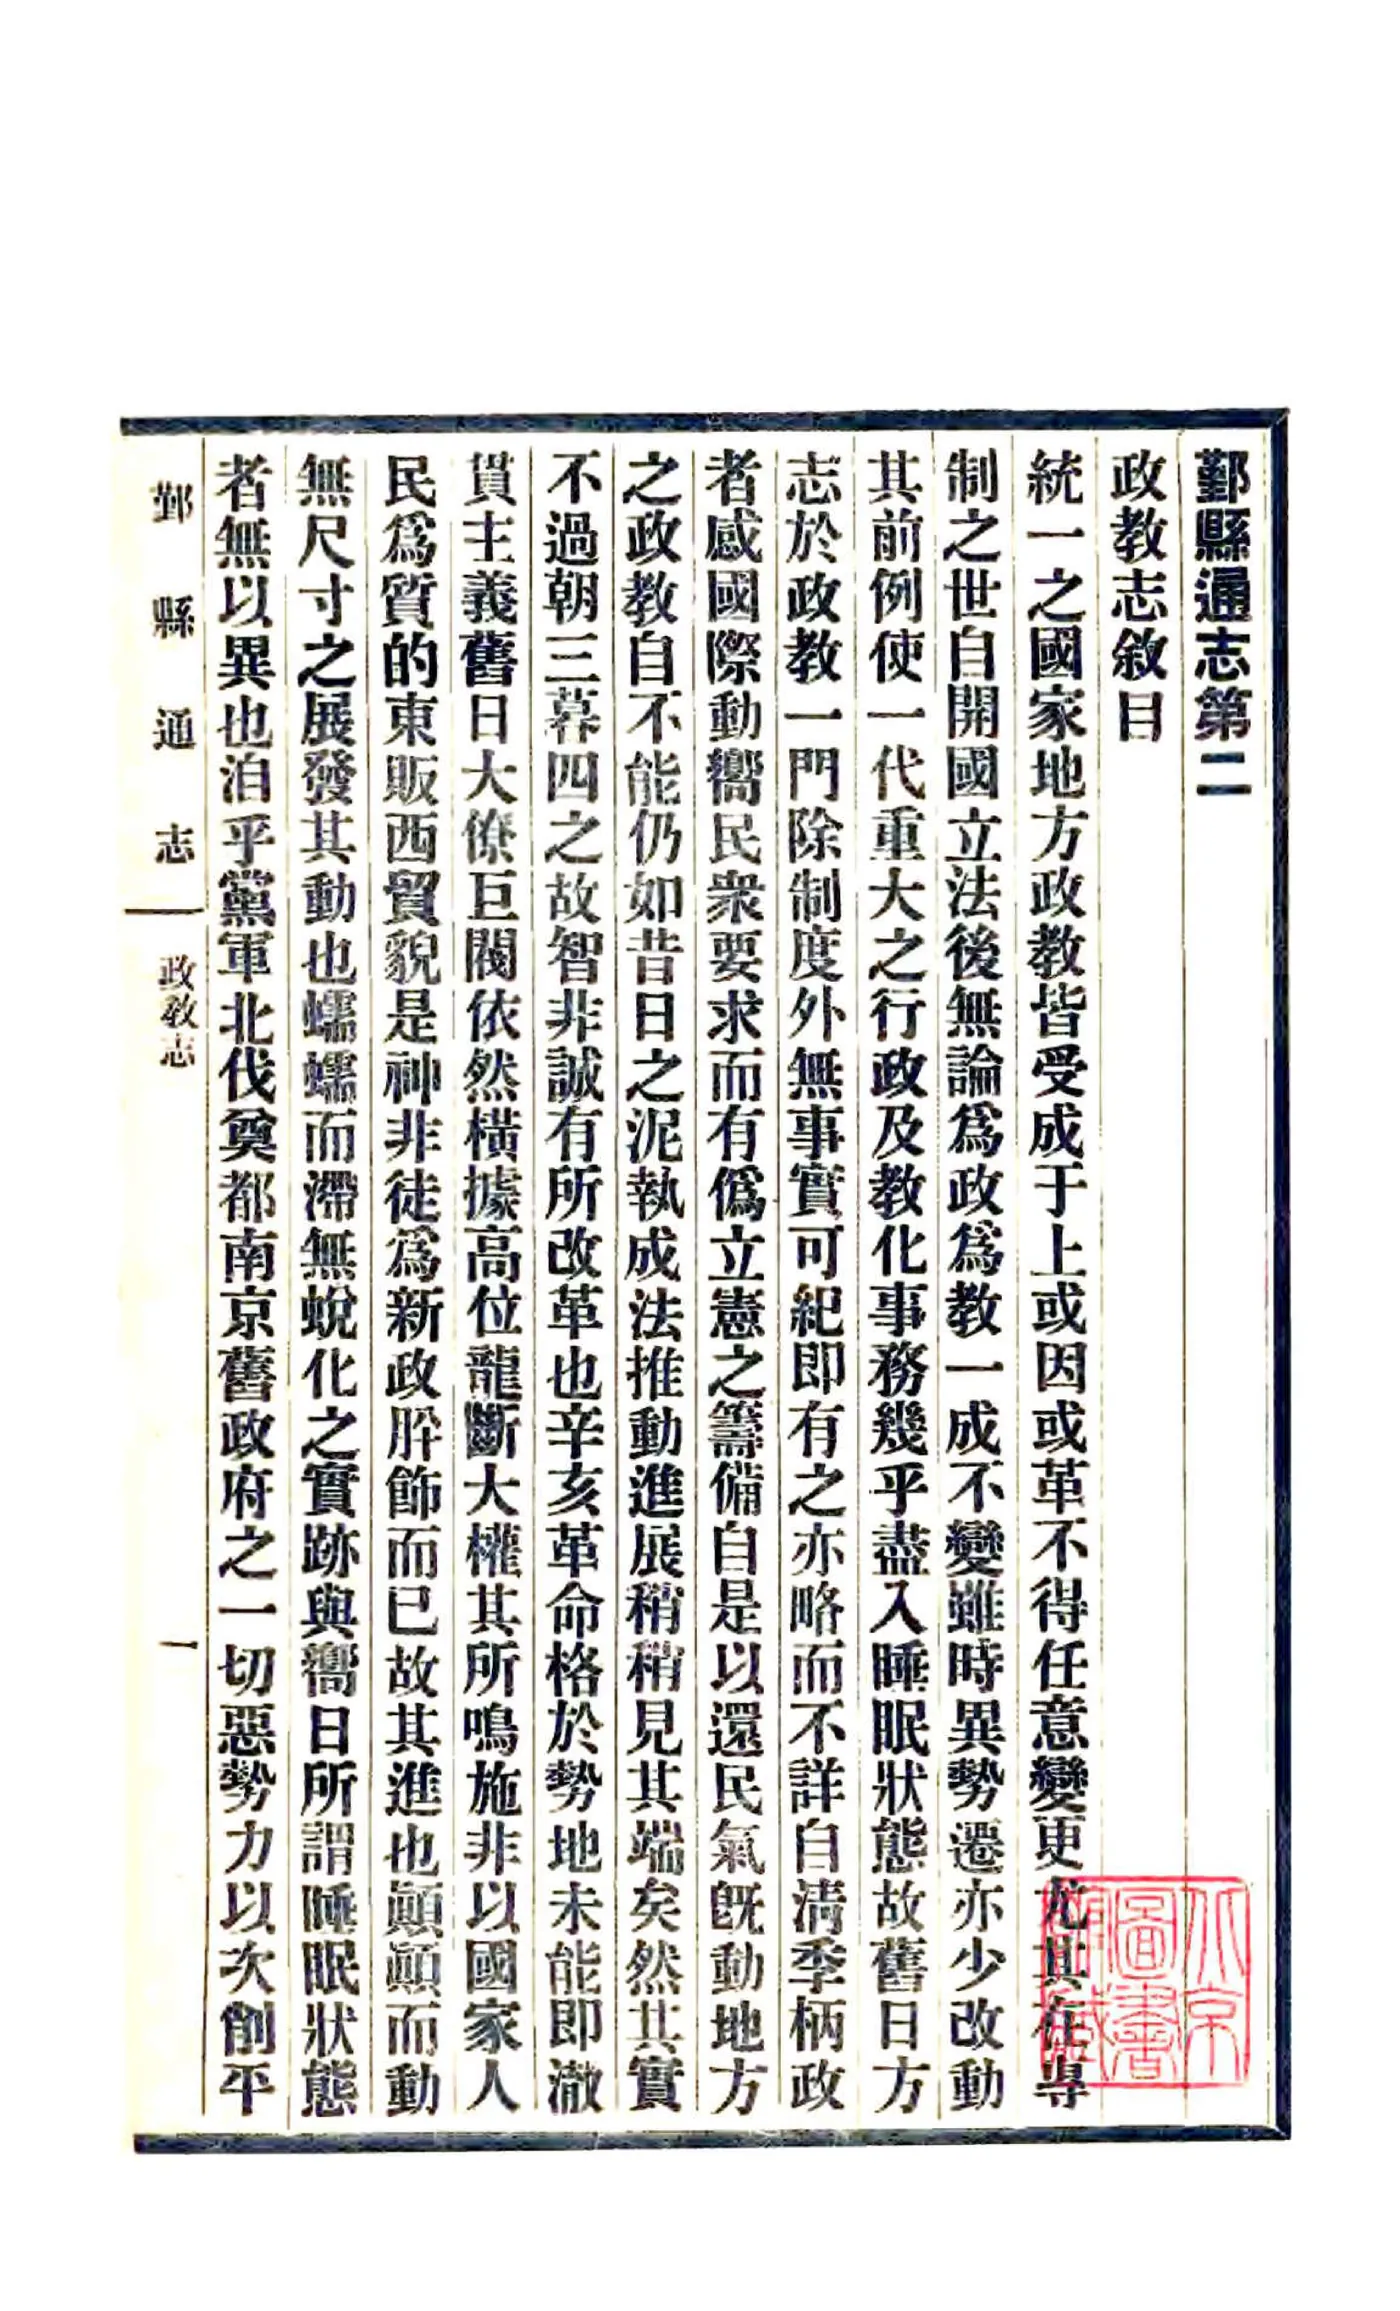 鄞縣通志第二
政教志敘目
統一之國家地方政教皆受成于上或因或革不得任意變更尤其在專
制之世自開國立法後無論爲政爲教一成不變雖時異勢遷亦少改動
其前例使一代重大之行政及教化事務幾乎盡入睡眠狀態故舊日方
志於政教一門除制度外無事實可紀即有之亦略而不詳自清季柄政
者感國際動嚮民衆要求而有僞立憲之籌備自是以還民氣旣動地方
之政教自不能仍如昔日之泥執成法推動進展稍稍見其端矣然其實
不過朝三暮四之故智非誠有所改革也辛亥革命格於勢地未能即澈
貫主義舊日大僚巨閥依然橫據高位龍斷大權其所鳴施非以國家人
民爲質的東販西貿貌是神非徒爲新政肸飾而已故其進也顚顚而動
無尺寸之展發其動也蠕蠕而滯無蛻化之實跡與嚮日所謂睡眠狀態
者無以異也洎乎黨軍北伐奠都南京舊政府之一切惡勢力以次削平
鄞縣通志
政教志
一
北京
圖書
館藏